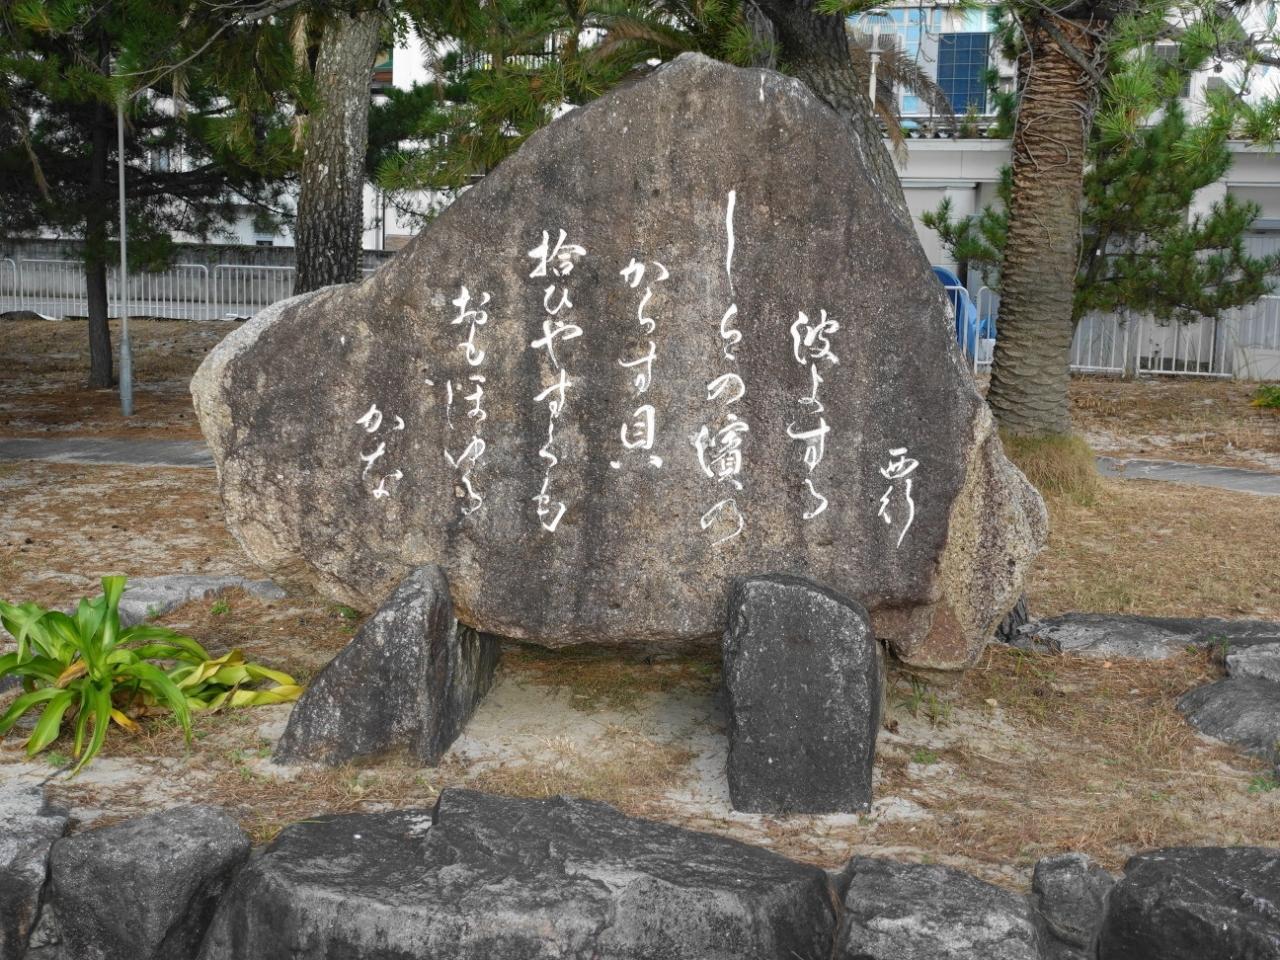 西行
波よする
しららの濱の
からす貝
拾ひやすくも
おもほゆる
かな